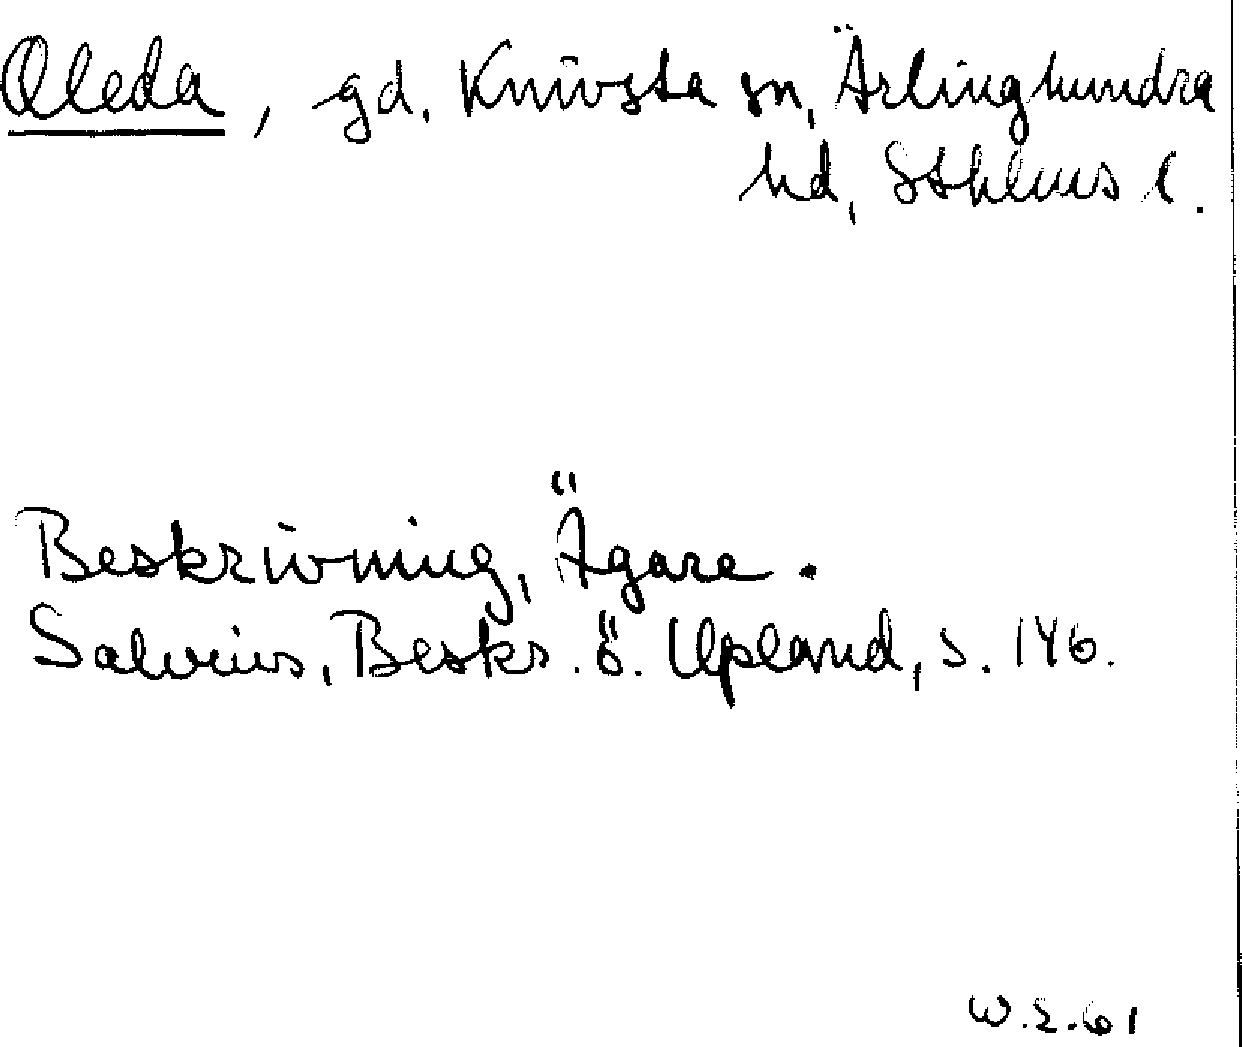 Aleda, gd. Knivsta sn, Ärlinghundra
hd, Sthlms l.
Beskrivning, Ägare.
Salvius, Beskr. ö. Upland, s. 146.
W.S.61